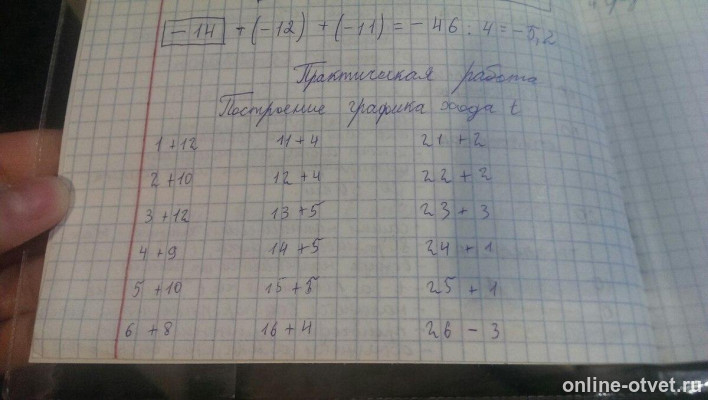 -14 + (-12) + (-11) = -46 : 4 = -5,2
Практическая работа
Построение графика хода t
1 +12 11 +4 21 +2
2 +10 12 +4 22 +2
3 +12 13 +5 23 +3
4 +9 14 +5 24 +1
5 +10 15 +5 25 +1
6 +8 16 +4 26 -3
online-otvet.ru